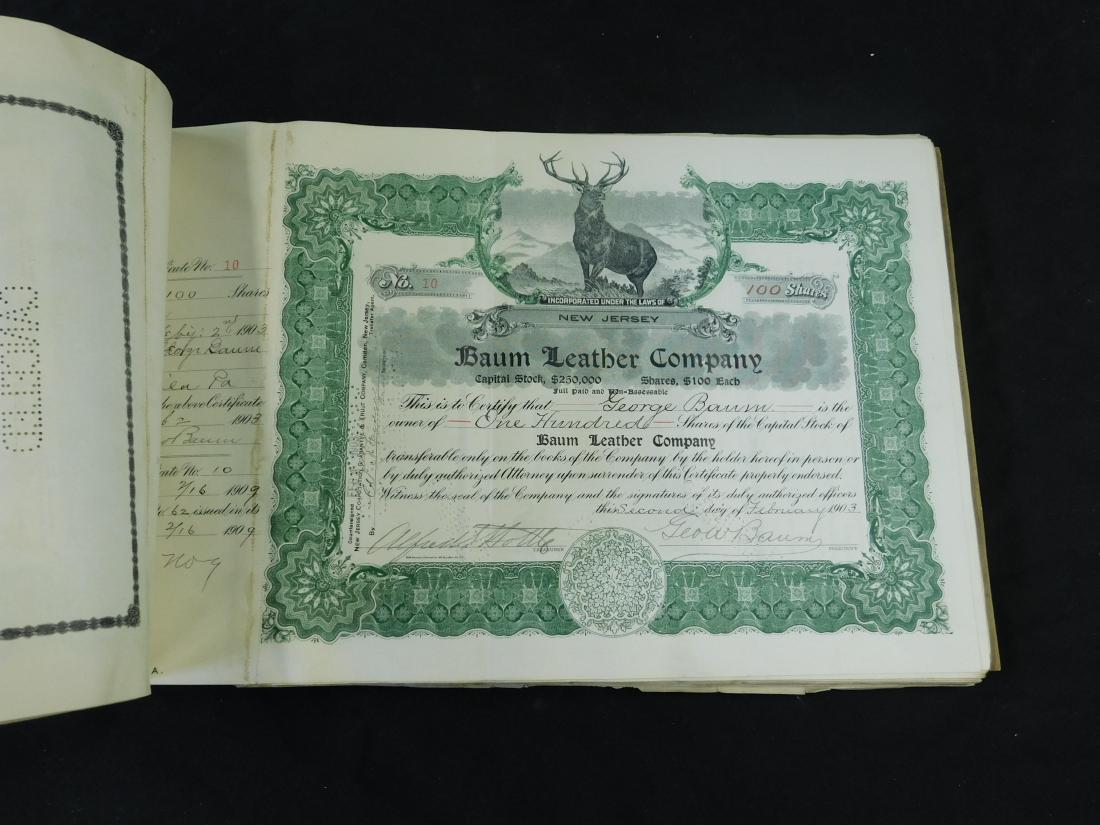 icate No. 10
100 Shares
2nd 1903
George Baum
Pa
the above Certificate
2 1903
Baum
cate No. 10
2/16 1909
62 issued in its
2/16 1909
No 9
A.
No. 10
100 Shares
INCORPORATED UNDER THE LAWS OF
NEW JERSEY
Baum Leather Company
Capital Stock, $250,000 Shares, $100 Each
Full Paid and Non-Assessable
This is to Certify that George Baum is the
owner of One Hundred Shares of the Capital Stock of
Baum Leather Company
transferable only on the books of the Company by the holder hereof in person or
by duly authorized Attorney upon surrender of this Certificate properly endorsed.
Witness the seal of the Company and the signatures of its duly authorized officers
this Second day of February 1903.
Geo W Baum
TREASURER
PRESIDENT
Countersigned
NEW JERSEY CORPORATION GUARANTEE & TRUST COMPANY, Camden, New Jersey,
Transfer Agent.
By